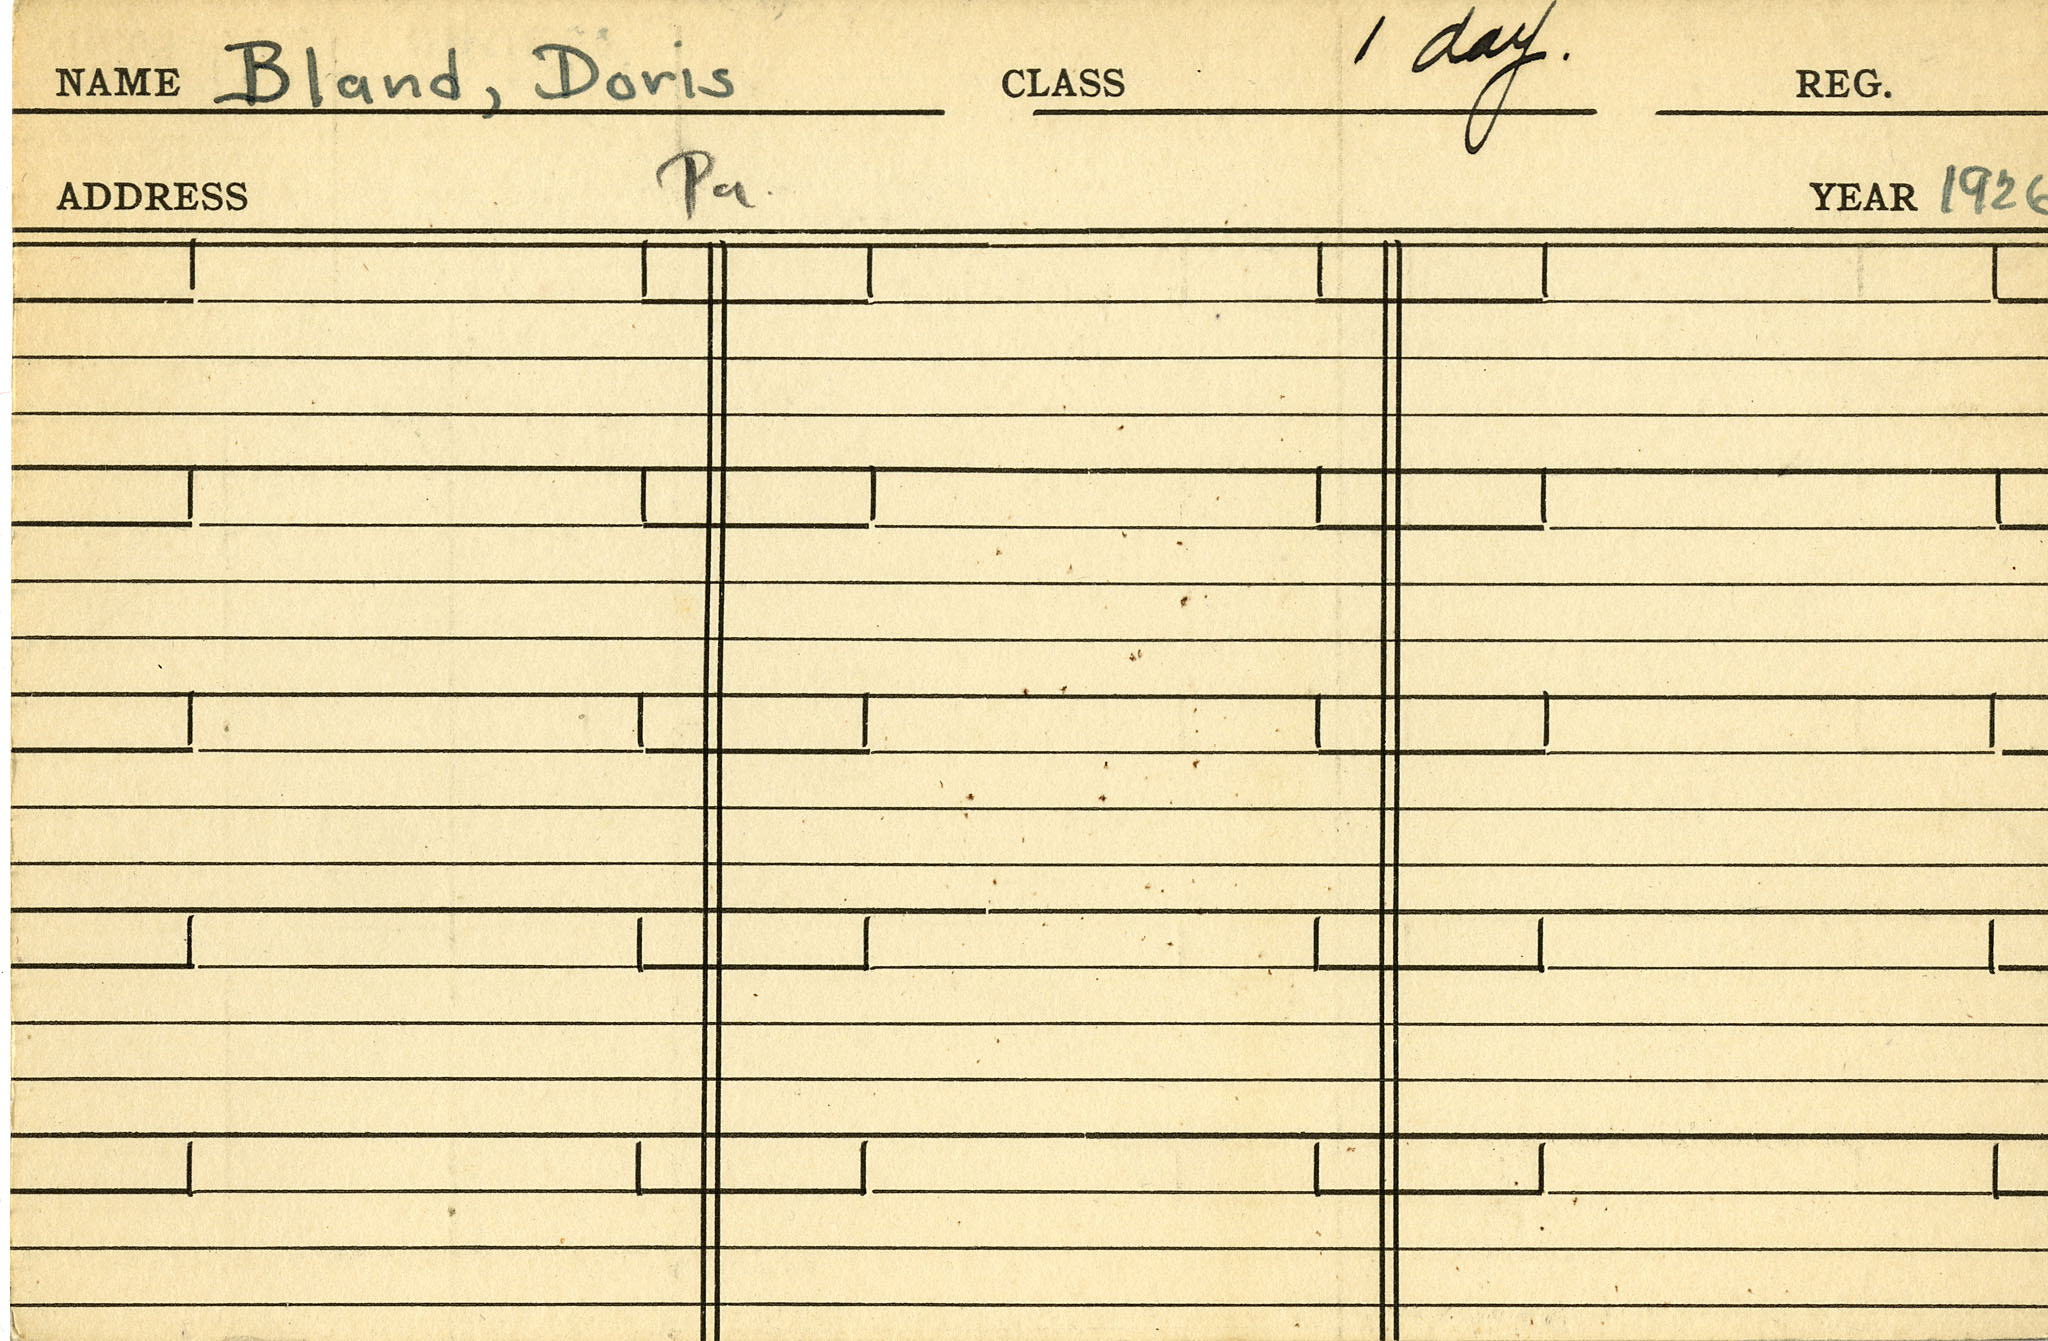 NAME Bland, Doris CLASS 1 day. REG.
ADDRESS Pa. YEAR 1926